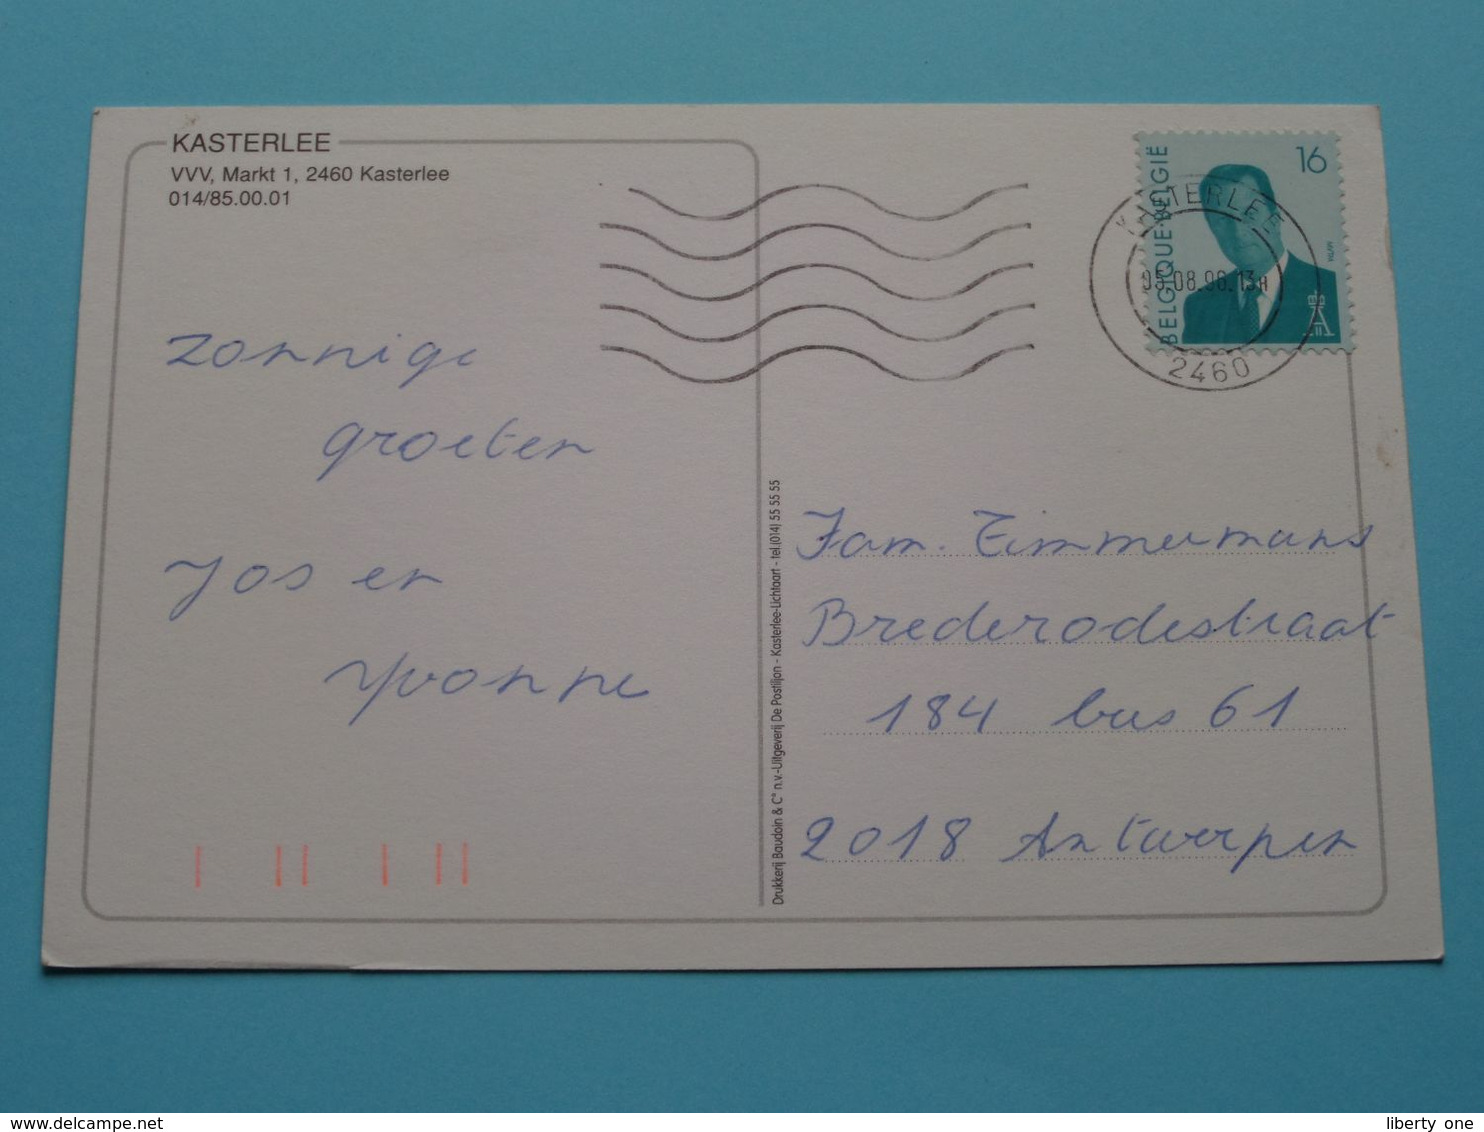 KASTERLEE
VVV, Markt 1, 2460 Kasterlee
014/85.00.01
zonnige
groeten
Jos en
Yvonne
BELGIQUE-BELGIË
16
KASTERLEE
05.08.96.13H
2460
Drukkerij Baudoin & C° n.v.-Uitgeverij De Postiljon - Kasterlee-Lichtaart - tel.(014) 55 55 55
Fam. Timmermans
Brederodestraat
184 bus 61
2018 Antwerpen
www.delcampe.net
liberty one